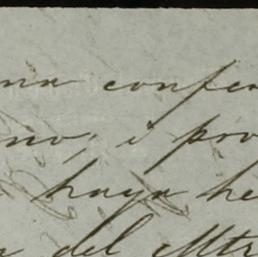 una confe
no; i pro
haya he
del Mtr